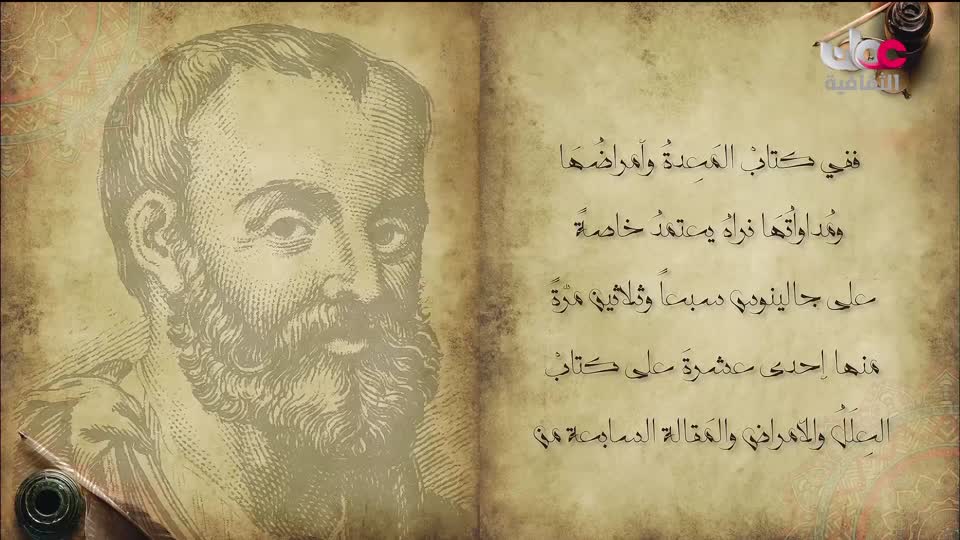 عمان
الثقافية
ففي كَتابْ المَعِدةُ وأمراضُهَا
ومُداواُتُهَا نراهُ يعتمدُ خاصةً
عَلى جالينوس سبعاً وثلاثين مرّةً
منها إحدى عشرةَ على كَتابْ
العِلَلُ والأمراض والمَقالة السابعة من